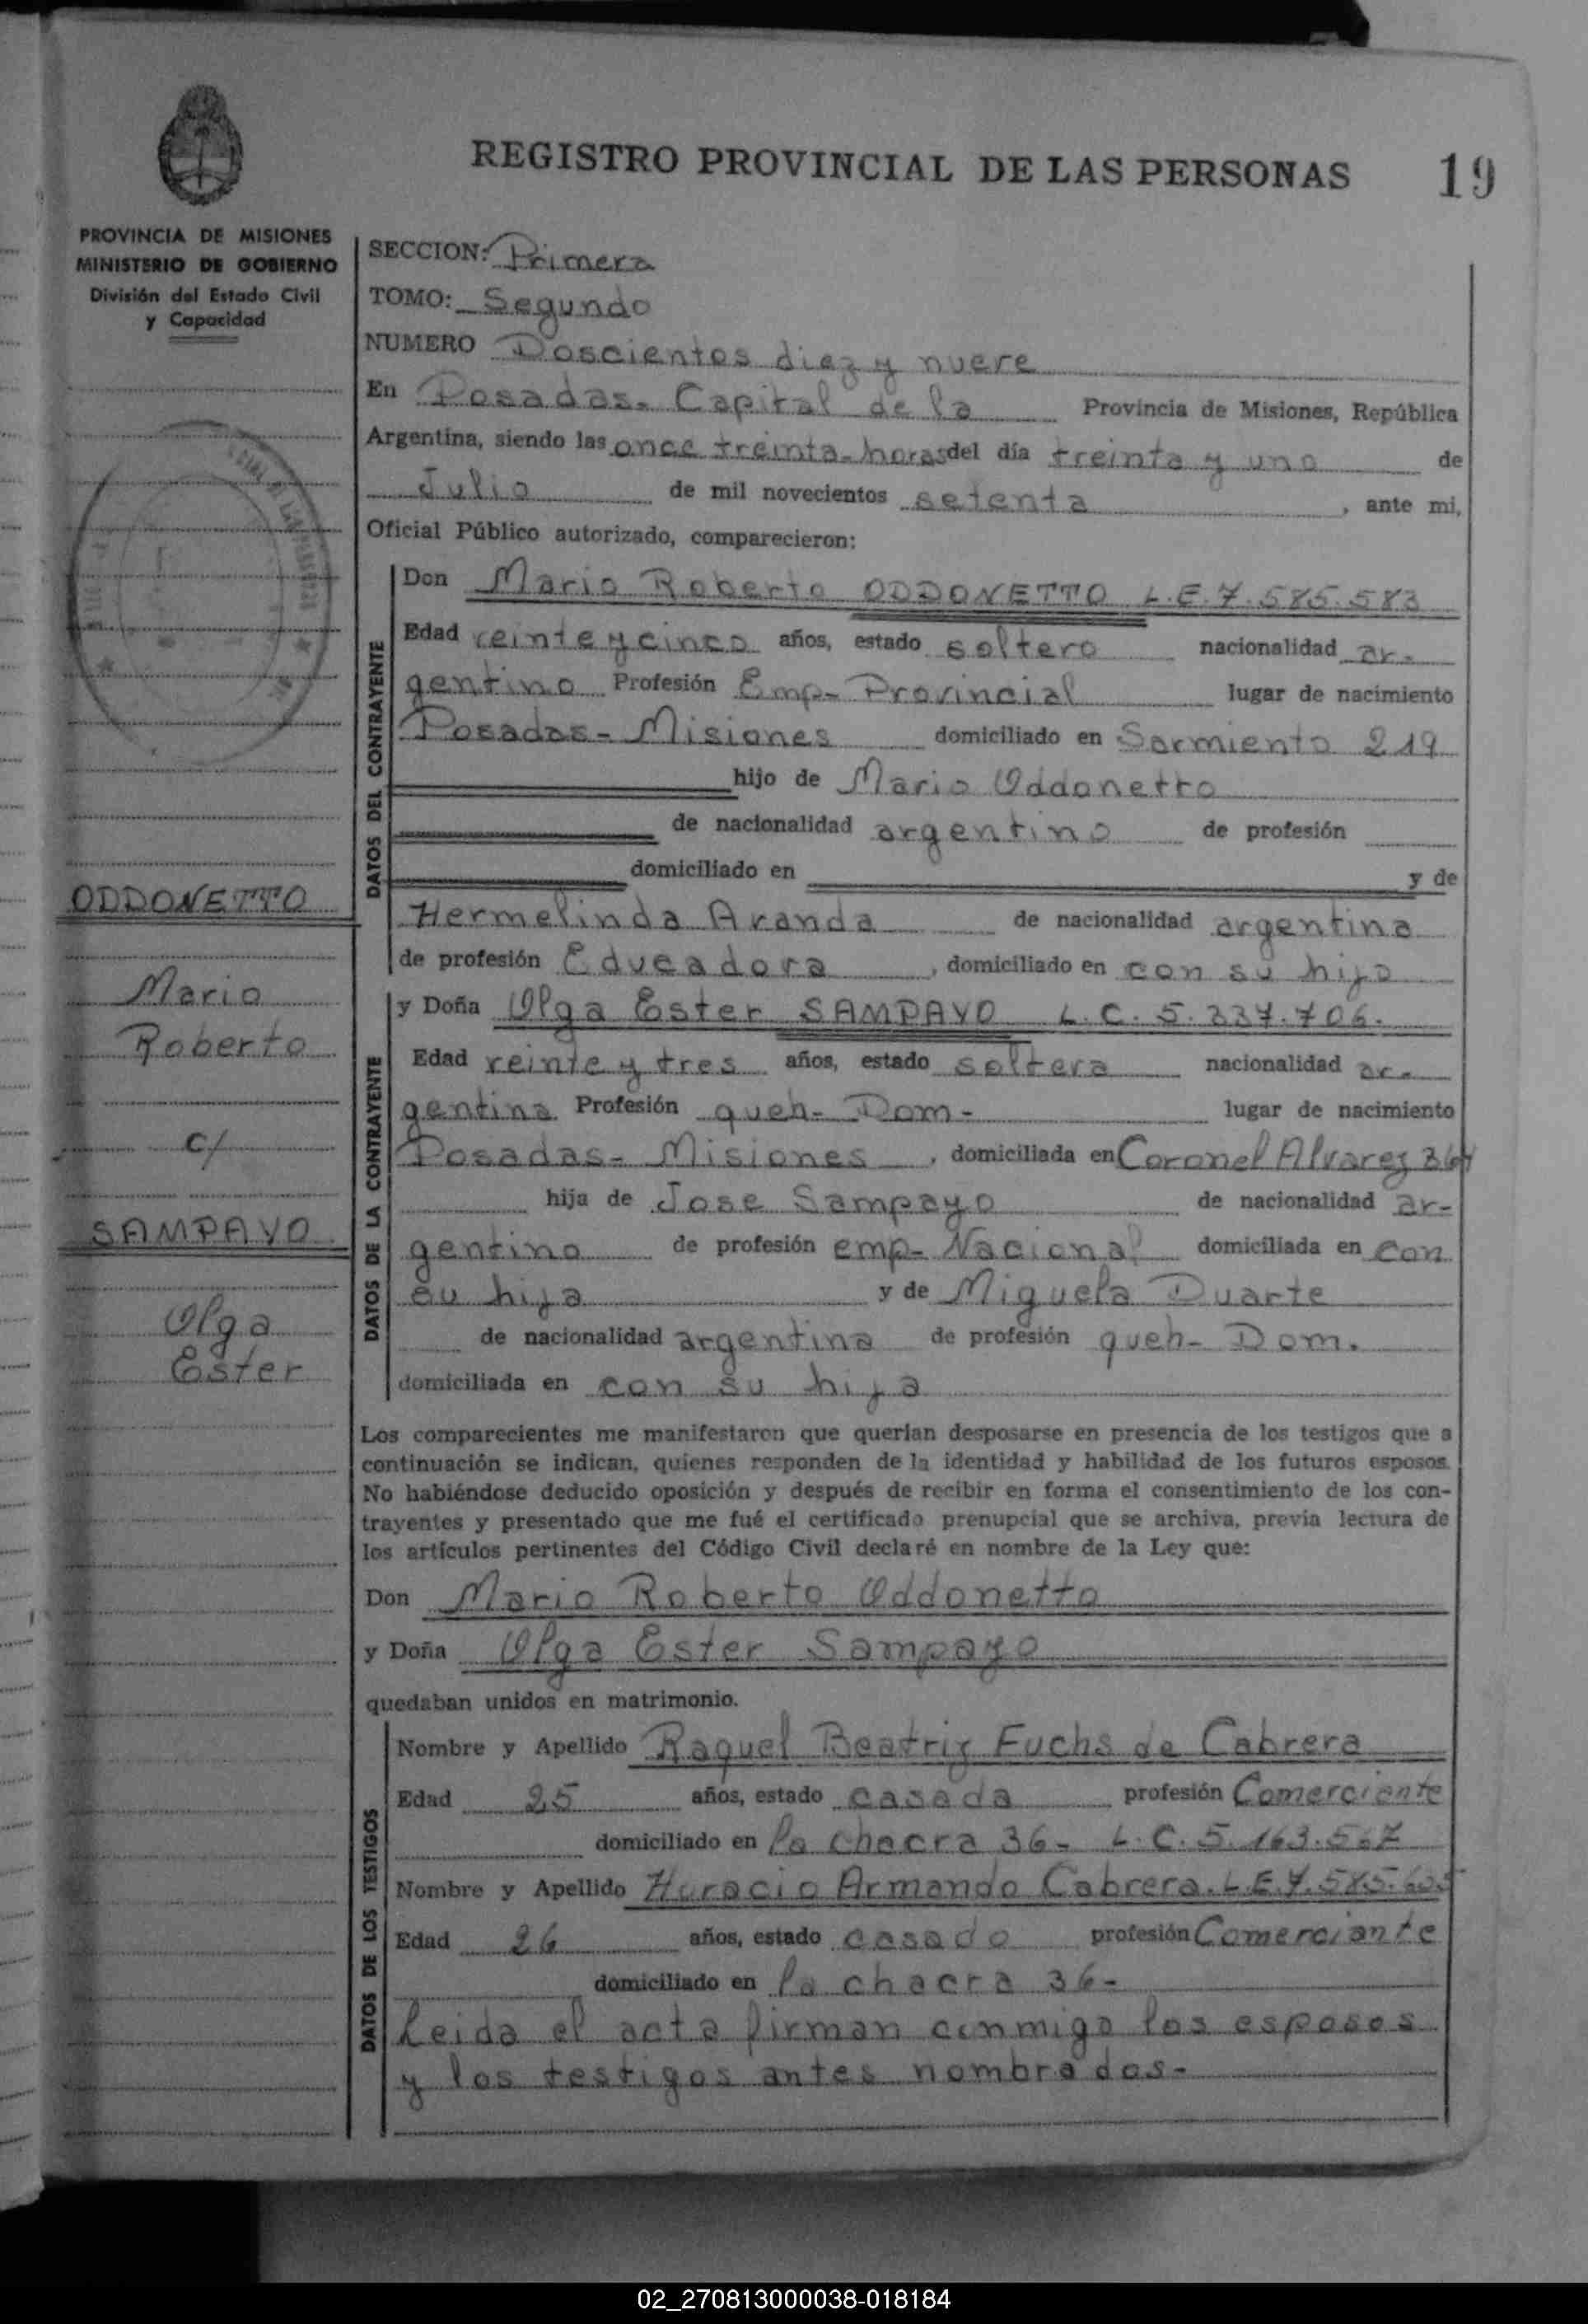 REGISTRO PROVINCIAL DE LAS PERSONAS 19
PROVINCIA DE MISIONES
MINISTERIO DE GOBIERNO
División del Estado Civil
y Capacidad
ODDONETTO
Mario
Roberto
c/
SAMPAYO
Olga
Ester
SECCION: Primera
TOMO: Segundo
NUMERO Doscientos diez y nueve
En Posadas- Capital de la Provincia de Misiones, República
Argentina, siendo las once treinta- horas del día treinta y uno de
Julio de mil novecientos setenta, ante mi,
Oficial Público autorizado, comparecieron:
DATOS DEL CONTRAYENTE
Don Mario Roberto ODDONETTO L.E.7.585.583
Edad veinte y cinco años, estado soltero nacionalidad ar-
gentino Profesión Emp- Provincial lugar de nacimiento
Posadas- Misiones domiciliado en Sarmiento 219
hijo de Mario Oddonetto
de nacionalidad argentino de profesión
domiciliado en y de
Hermelinda Aranda de nacionalidad argentina
de profesión Educadora, domiciliado en con su hijo
DATOS DE LA CONTRAYENTE
y Doña Olga Ester SAMPAYO L.C. 5.337.706.
Edad veinte y tres años, estado soltera nacionalidad ar-
gentina Profesión queh- Dom- lugar de nacimiento
Posadas- Misiones, domiciliada en Coronel Alvarez 364
hija de Jose Sampayo de nacionalidad ar-
gentino de profesión emp- Nacional domiciliada en con
su hija y de Miguela Duarte
de nacionalidad argentina de profesión queh- Dom.
domiciliada en con su hija
Los comparecientes me manifestaron que querían desposarse en presencia de los testigos que a
continuación se indican, quienes responden de la identidad y habilidad de los futuros esposos.
No habiéndose deducido oposición y después de recibir en forma el consentimiento de los con-
trayentes y presentado que me fué el certificado prenupcial que se archiva, previa lectura de
los artículos pertinentes del Código Civil declaré en nombre de la Ley que:
Don Mario Roberto Oddonetto
y Doña Olga Ester Sampayo
quedaban unidos en matrimonio.
DATOS DE LOS TESTIGOS
Nombre y Apellido Raquel Beatriz Fuchs de Cabrera
Edad 25 años, estado casada profesión Comerciante
domiciliado en la chacra 36- L.C.5.163.567
Nombre y Apellido Horacio Armando Cabrera. L.E.7.585.605
Edad 26 años, estado casado profesión Comerciante
domiciliado en la chacra 36-
Leida el acta firman conmigo los esposos
y los testigos antes nombrados-
02_270813000038-018184